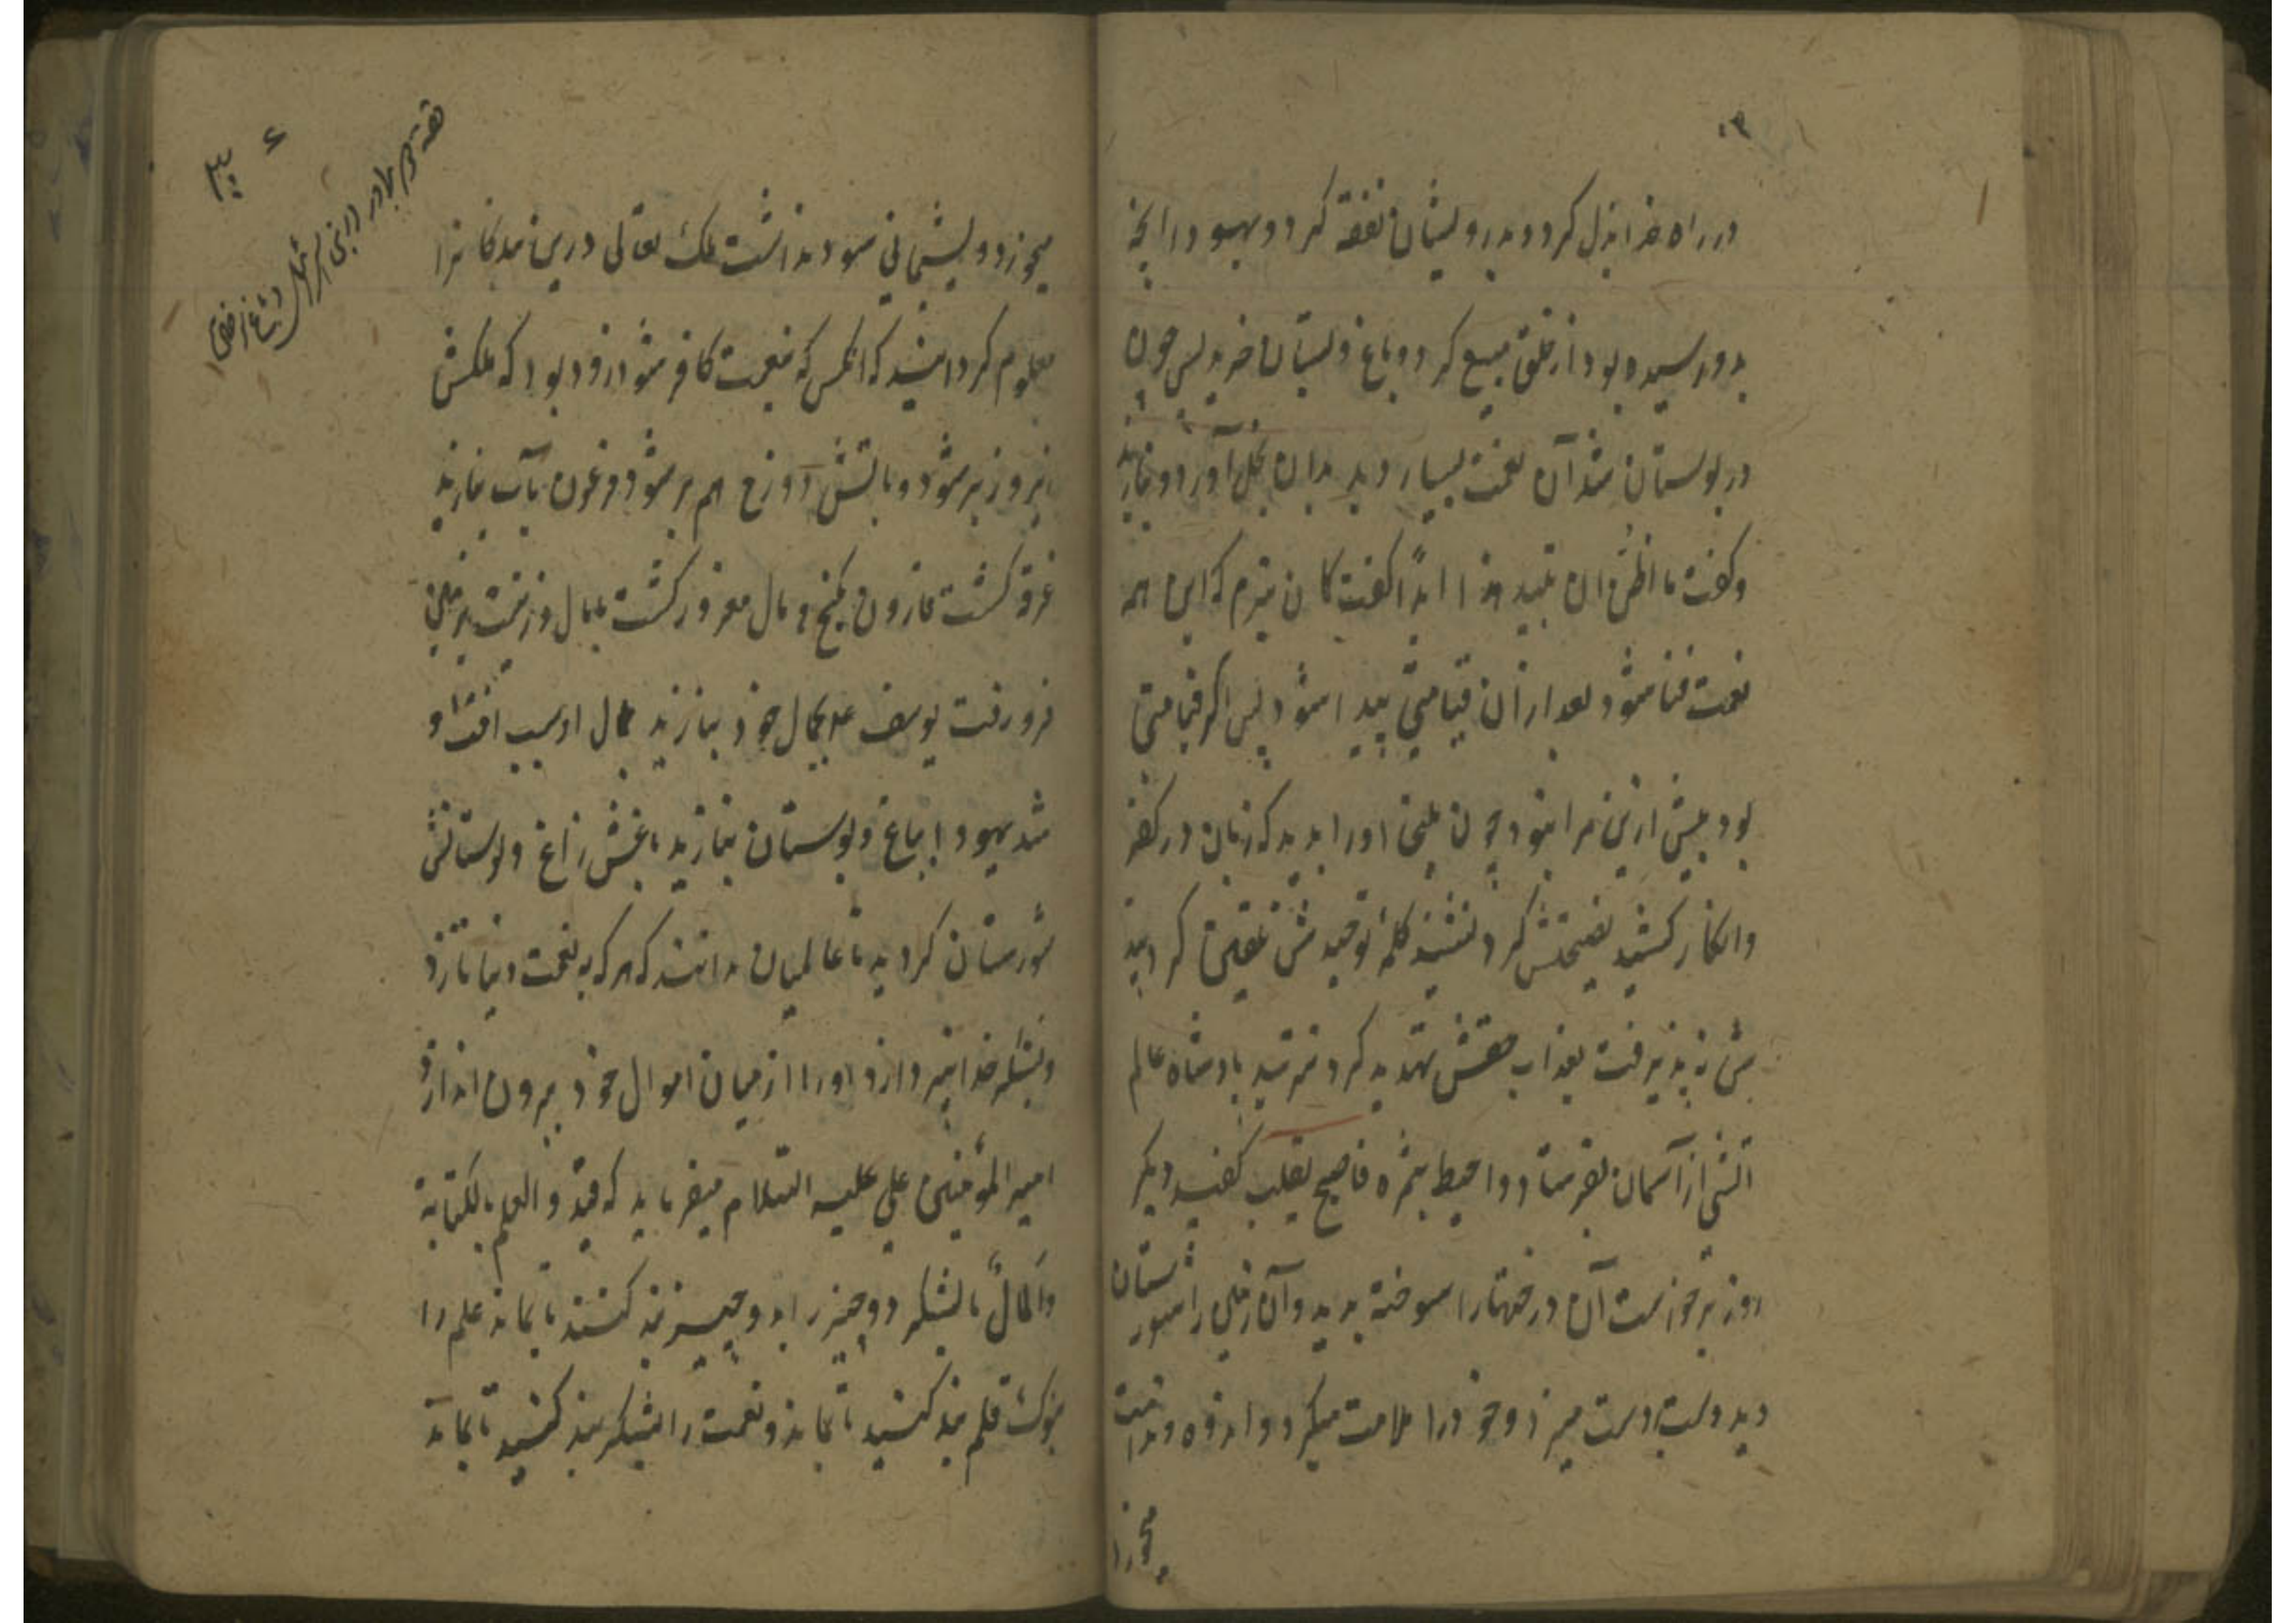 در راه خدا بذل کرد و بدرویشان نفقه کرد و یهودا آنچه
بدو رسیده بود از خلق منع کرد و باغ و بستان خرید پس چون
در بوستان شد آن نعمت بسیار دید بدان بخل آورد و بنازید
و کفت ما اظن ان تبید هذا ابداً کفت کمان نبرم که این همه
نعمت فنا شود بعد از آن قیامتی پیدا شود پس اگر قیامتی
بود بیش ازین مرا بنود چون یملیخا اورا بدید که زبان در کفر
وانکار کشید نصیحتش کرد نشنید کلمهٔ توحیدش تلقین کرد
ش نپذیرفت بعذاب حقش تهدید کرد نترسید پادشاه عالم
آتشی از آسمان بفرستاد و احیط بثمره فاصبح یقلب کفیه دیکر
روز برخواست آن درختها را سوخته بدید و آن زمین را شورستان
دید دست بر دست میزد و خود را ملامت میکرد و اندوه و ندامت
میخورد
۳۰ ۶
قصه دو برادر در بنی اسرائیل
میخورد و پشیمانی سود نداشت ملک تعالی درین بندکانرا
معلوم کردانید که آنکس که بنعمت کافر شود زود بود که ملکش
زیر و زبر شود و بآتش دوزخ هم بر شود فرعون بآب بنازید
غرق کشت قارون بکنج و مال مغرور کشت با مال و نعمت بزمین
فرو رفت یوسف ع بجمال خود بنازید جمال او سبب آفت او
شد یهودا بباغ و بوستان بنازید باغش زاغ و بوستانش
شورستان کردید تا عالمیان بدانند که هر که به نعمت دنیا نازد
و بشکر خدا نپردازد اورا از میان اموال خود بیرون اندازد
امیر المؤمنین علی علیه السلام میفرماید که قیدوا العلم بالکتابة
والمال بالشکر دو چیز را بدو چیز بند کنید تا بماند علم را
بنوک قلم بند کنید تا بماند و نعمت را بشکر بند کنید تا بماند